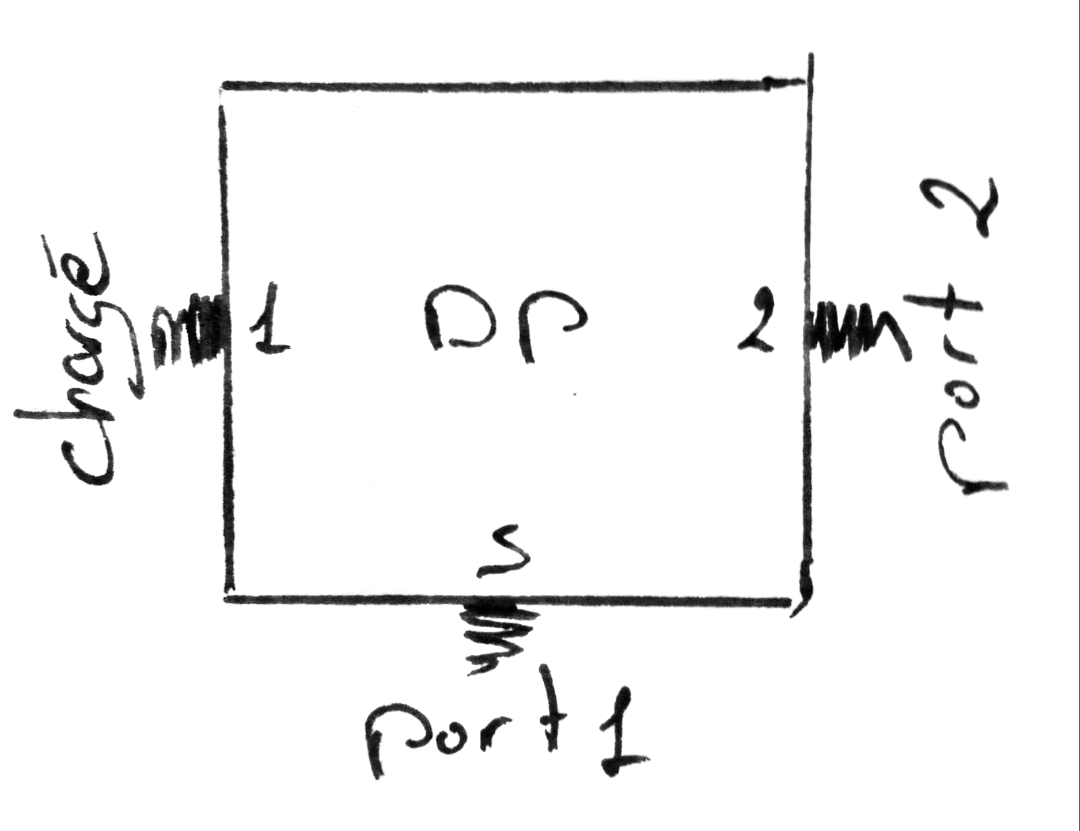 chargé
1
DP
2
port 2
S
port 1